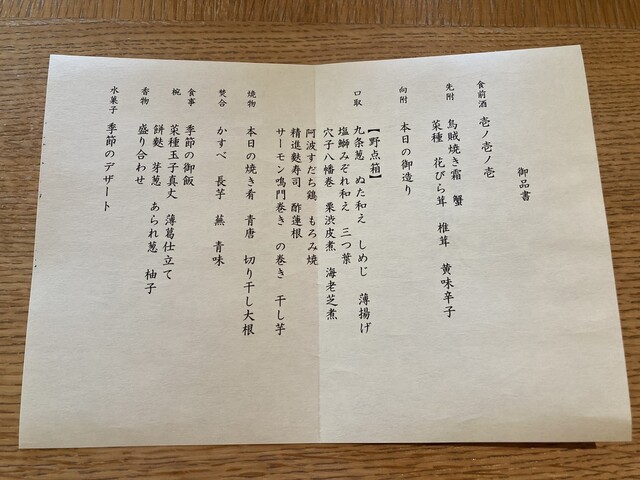 御品書
食前酒　壱ノ壱ノ壱
先附　烏賊焼き霜　蟹
菜種　花びら茸　椎茸　黄味辛子
向附　本日の御造り
口取　【野点箱】
九条葱　ぬた和え　しめじ　薄揚げ
塩鰤みぞれ和え　三つ葉
穴子八幡巻　栗渋皮煮　海老芝煮
阿波すだち鶏　もろみ焼
精進麩寿司　酢蓮根
サーモン鳴門巻き　の巻き　干し芋
焼物　本日の焼き肴　青唐　切り干し大根
焚合　かすべ　長芋　蕪　青味
食事　季節の御飯
椀　菜種玉子真丈　薄葛仕立て
餅麩　芽葱　あられ葱　柚子
香物　盛り合わせ
水菓子　季節のデザート